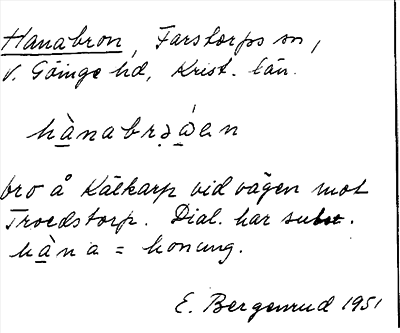 Hanabron, Farstorps sn,
V. Göinge hd, Krist. län.
hànabrə̣ạ́en
bro å Kälkarp vid vägen mot
Troedstorp. Dial. har subst.
hàna = honung.
E. Bergenrud 1951